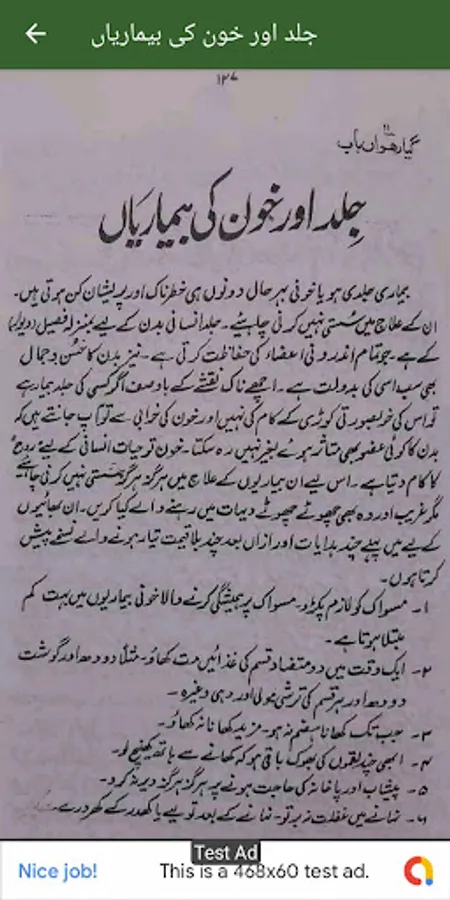 جلد اور خون کی بیماریاں
۱۲۷
گیارھواں باب
جِلد اور خون کی بیماریاں
بیماری جلدی ہو یا خونی بہر حال دونوں ہی خطرناک اور پریشان کن ہوتی ہیں۔
ان کے علاج میں سستی نہیں کرنی چاہئیے۔ جلد انسانی بدن کے لیے بمنزلہ فصیل (دیوار)
کے ہے۔ جو تمام اندرونی اعضاء کی حفاظت کرتی ہے۔ نیز بدن کا حسن و جمال
بھی سب اسی کی بدولت ہے۔ اچھے ناک نقشے کے باوصف اگر کسی کی جلد بیمار ہے
تو اس کی خوبصورتی کوڑی کے کام کی نہیں اور خون کی خرابی سے تو آپ جانتے ہیں کہ
بدن کا کوئی عضو بھی متاثر ہوئے بغیر نہیں رہ سکتا۔ خون تو حیات انسانی کے لیے روح
کا کام دیتا ہے۔ اس لیے ان بیماریوں کے علاج میں ہرگز ہرگز سستی نہیں کرنی چاہئے
مگر غریب اور وہ بھی چھوٹے چھوٹے دیہات میں رہنے والے کیا کریں۔ ان بھائیوں
کے لیے میں پہلے چند ہدایات اور ازاں بعد چند بلا قیمت تیار ہونے والے نسخے پیش
کرتا ہوں۔
۱۔ مسواک کو لازم پکڑو۔ مسواک پر ہمیشگی کرنے والا خونی بیماریوں میں بہت کم
مبتلا ہوتا ہے۔
۲۔ ایک وقت میں دو متضاد قسم کی غذائیں مت کھاؤ۔ مثلاً دودھ اور گوشت
دودھ اور ہر قسم کی ترشی مولی اور دہی وغیرہ۔
۳۔ جب تک کھانا ہضم نہ ہو۔ مزید کھانا نہ کھاؤ۔
۴۔ ابھی چند لقموں کی بھوک باقی ہو کہ کھانے سے ہاتھ کھینچ لو۔
۵۔ پیشاب اور پاخانہ کی حاجت ہونے پر ہرگز ہرگز دیر نہ کرو۔
۶۔ نہانے میں غفلت نہ برتو۔ نہانے کے بعد تولیے یا کھدر کے کھردرے
Test Ad
Nice job!
This is a 468x60 test ad.